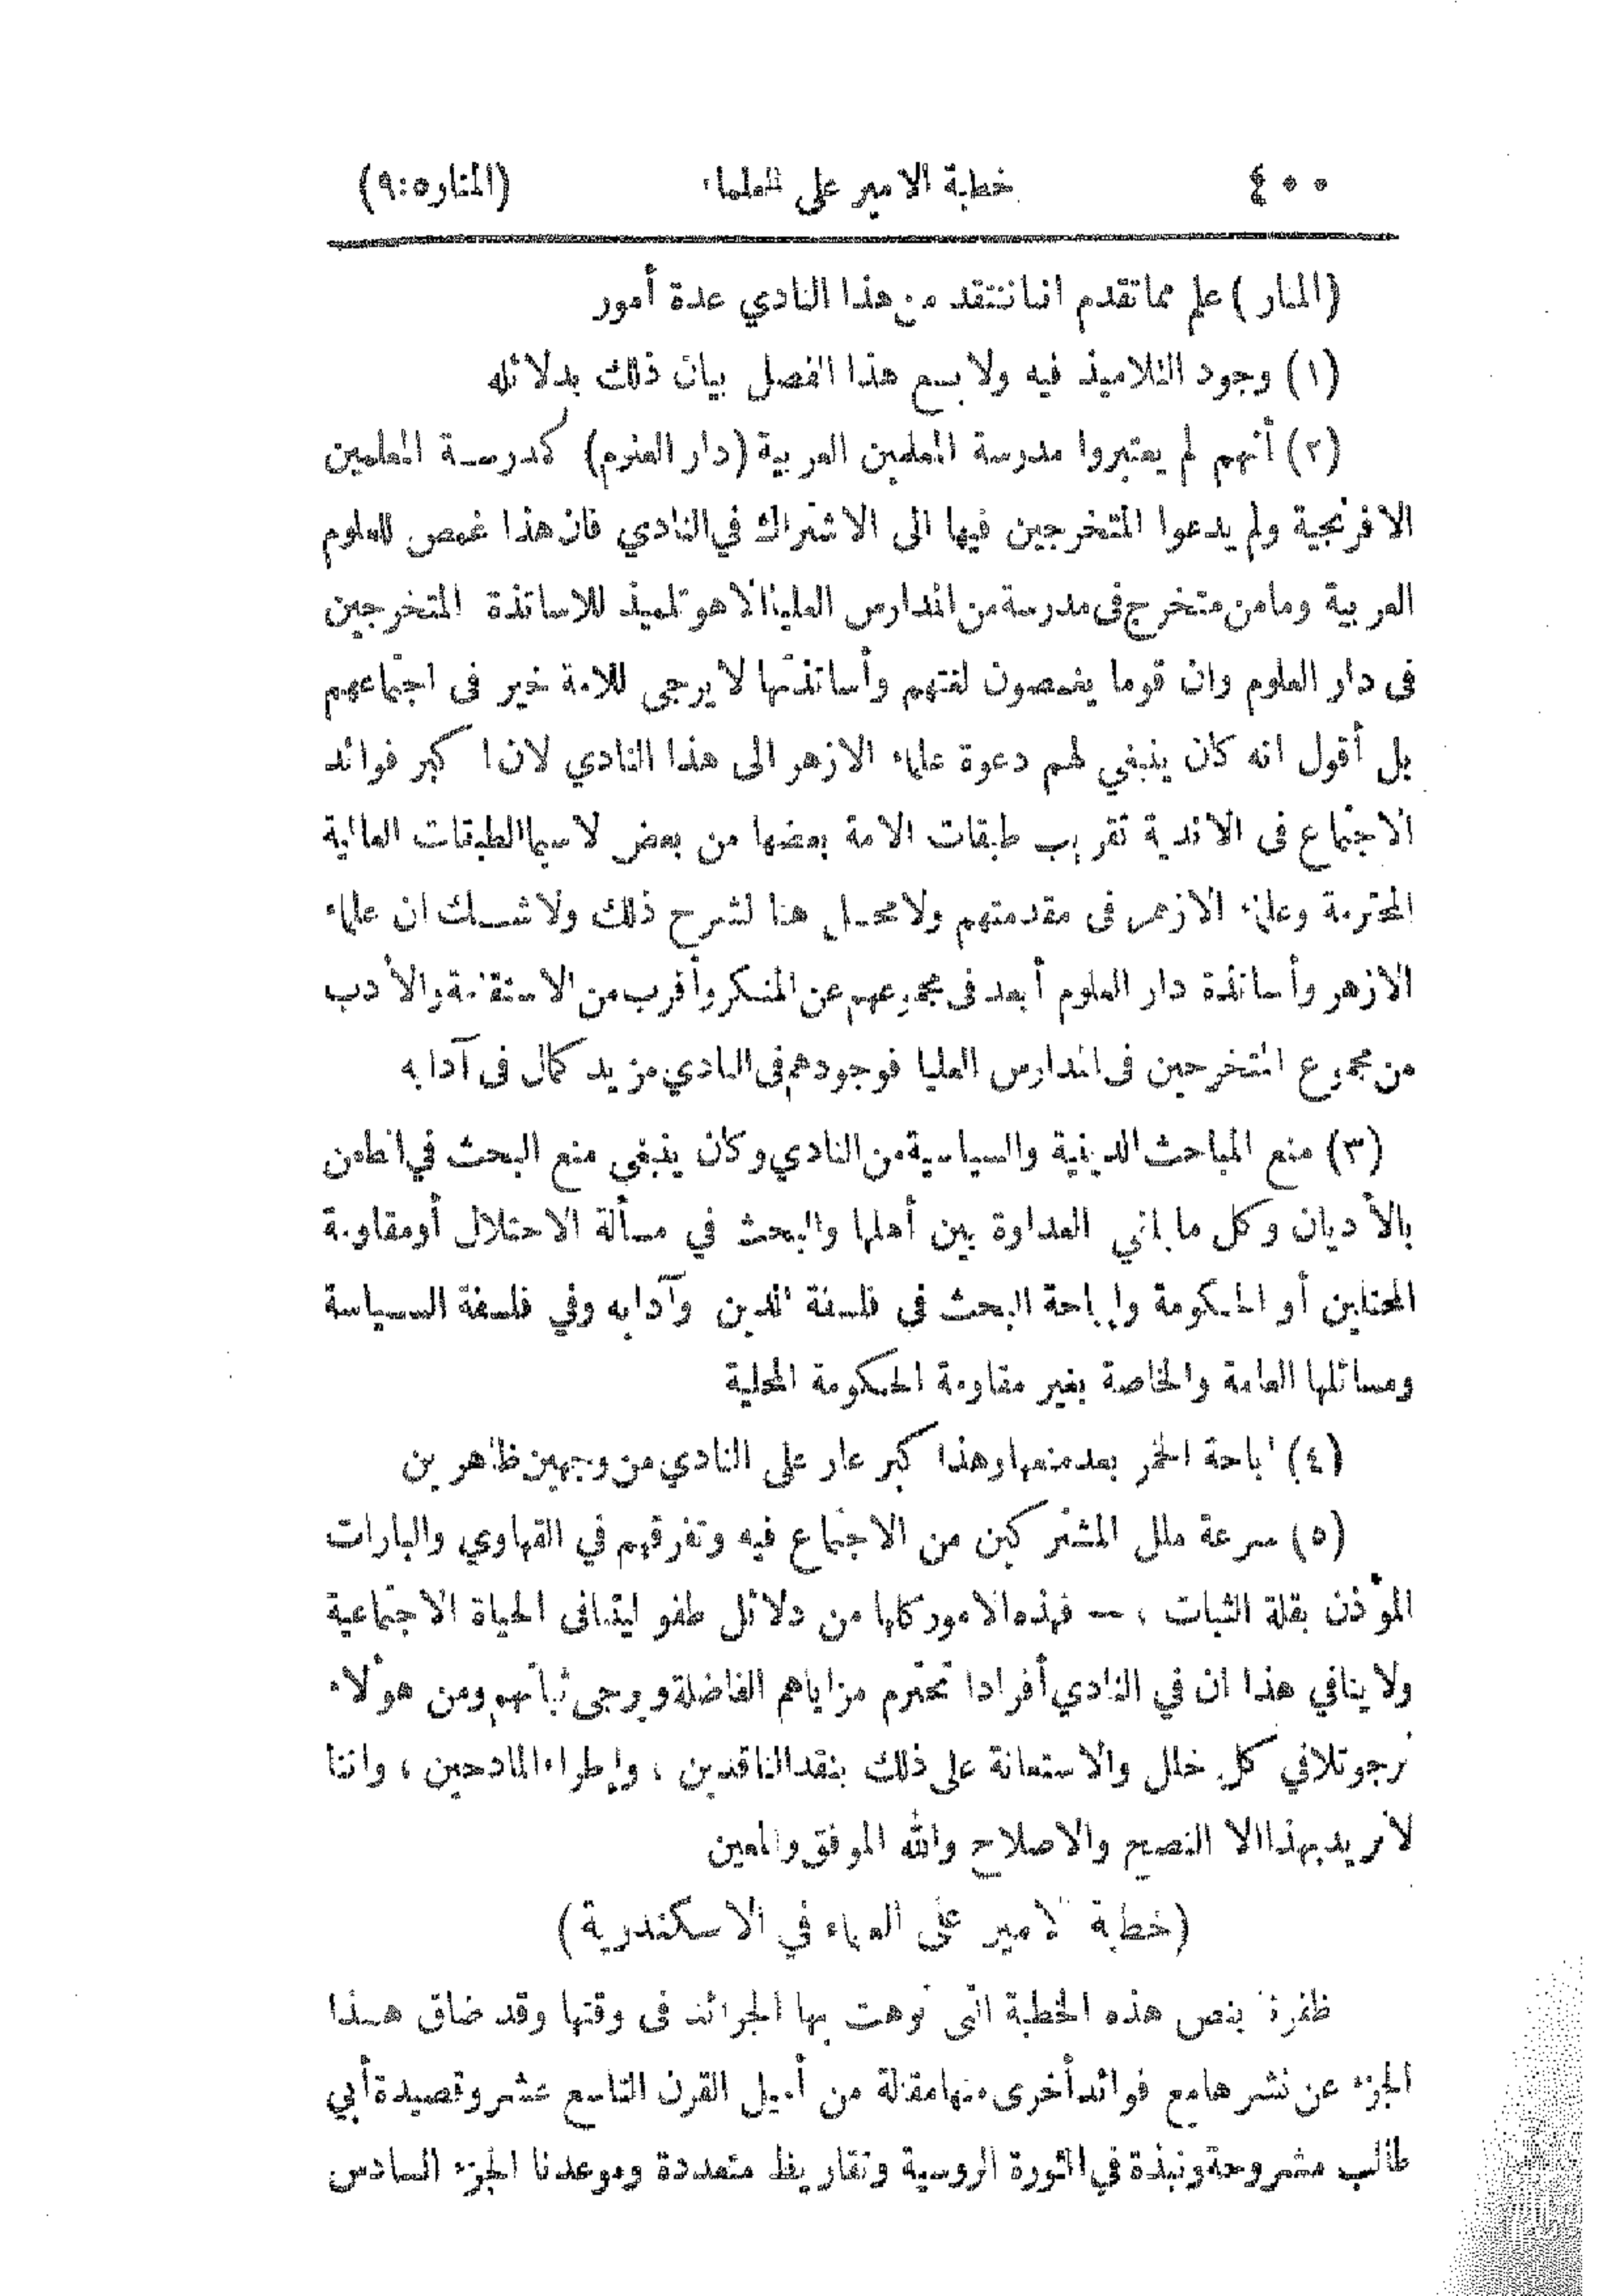 ٤٠٠ خطبة الامير على العلماء (المنار ٥:٩)
(المنار) علم مما تقدم اننا ننتقد من هذا النادي عدة أمور
(١) وجود التلاميذ فيه ولا يسع هذا الفصل بيان ذلك بدلائله
(٢) أنهم لم يعتبروا مدرسة المعلمين العربية (دار العلوم) كمدرسة المعلمين
الافرنجية ولم يدعوا المتخرجين فيها الى الاشتراك في النادي فان هذا غمص للعلوم
العربية وما من متخرج فى مدرسة من المدارس العليا الا هو تلميذ للاساتذة المتخرجين
فى دار العلوم وان قوما يغمصون لغتهم وأساتذتها لا يرجى للامة خير فى اجتماعهم
بل أقول انه كان ينبغي لهم دعوة علماء الازهر الى هذا النادي لان اكبر فوائد
الاجتماع فى الاندية تقريب طبقات الامة بعضها من بعض لا سيما الطبقات العالية
المحترمة وعلماء الازهر فى مقدمتهم ولا محل هنا لشرح ذلك ولا شك ان علماء
الازهر وأساتذة دار العلوم أبعد فى مجموعهم عن المنكر وأقرب من الاستقامة والأدب
من مجموع المتخرجين فى المدارس العليا فوجودهم فى النادي مزيد كمال فى آدابه
(٣) منع المباحث الدينية والسياسية من النادي وكان ينبغي منع البحث في الطعن
بالأديان وكل ما يلقي العداوة بين أهلها والبحث في مسألة الاحتلال أو مقاومة
المحتلين أو الحكومة وإباحة البحث في فلسفة الدين وآدابه وفي فلسفة السياسة
ومسائلها العامة والخاصة بغير مقاومة الحكومة المحلية
(٤) اباحة الخمر بعد منعها وهذا اكبر عار على النادي من وجهين ظاهرين
(٥) سرعة ملل المشتركين من الاجتماع فيه وتفرقهم في القهاوي والبارات
المؤذن بقلة الثبات ، — فهذه الامور كلها من دلائل طفوليتنا فى الحياة الاجتماعية
ولا ينافي هذا ان في النادي أفرادا تحترم مزاياهم الفاضلة ويرجى ثباتهم ومن هؤلاء
نرجو تلافي كل خلل والاستعانة على ذلك بنقد الناقدين ، وإطراء المادحين ، واننا
لا نريد بهذا الا النصح والاصلاح والله الموفق والمعين
(خطبة الامير على العلماء في الاسكندرية)
ظفرنا بنص هذه الخطبة التى نوهت بها الجرائد فى وقتها وقد ضاق هذا
الجزء عن نشرها مع فوائد أخرى منها مقالة من أميل القرن التاسع عشر وقصيدة أبي
طالب مشروحة ونبذة في الثورة الروسية وتقاريظ متعددة وموعدنا الجزء السادس